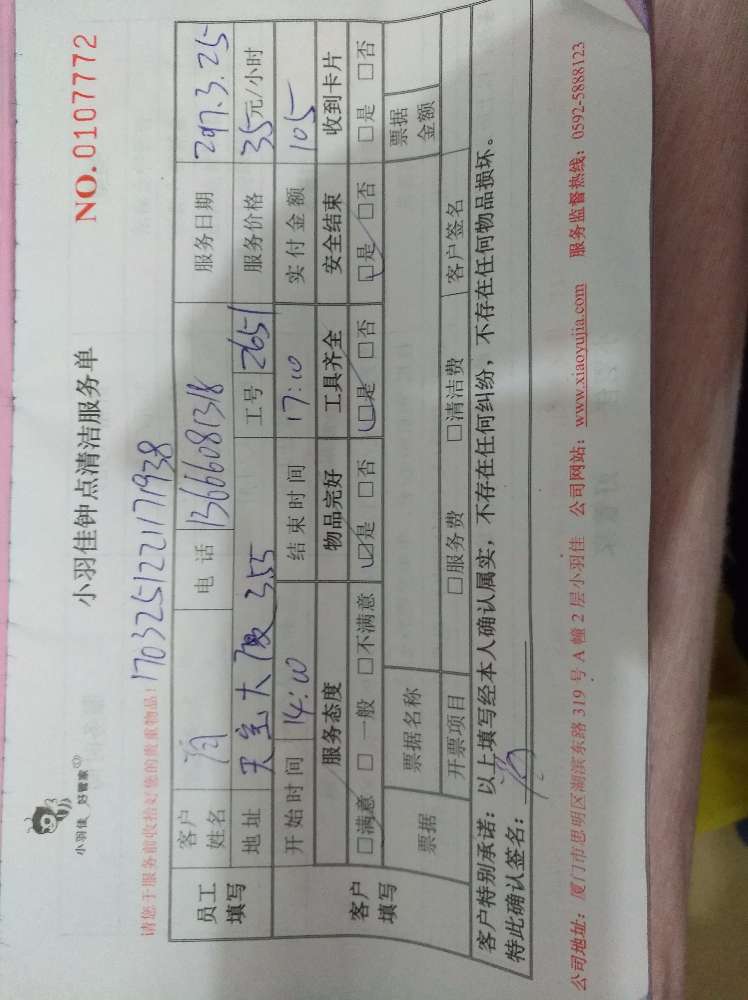 小羽佳 好管家
小羽佳钟点清洁服务单
NO.0107772
请您于服务前收拾好您的贵重物品！
170325122171938
员工填写 客户姓名 电话 13666081318 服务日期 2017.3.25
地址 天宝大厦 355 工号 2651 服务价格 35元/小时
开始时间 14:10 结束时间 17:10 实付金额 105
客户填写 服务态度 物品完好 工具齐全 安全结束 收到卡片
□满意 □一般 □不满意 □是 □否 □是 □否 □是 □否 □是 □否
票据 票据名称 票据金额
开票项目 □服务费 □清洁费 客户签名
客户特别承诺：以上填写经本人确认属实，不存在任何纠纷，不存在任何物品损坏。
特此确认签名：
公司地址：厦门市思明区湖滨东路 319 号 A 幢 2 层小羽佳 公司网站：www.xiaoyujia.com 服务监督热线：0592-5888123